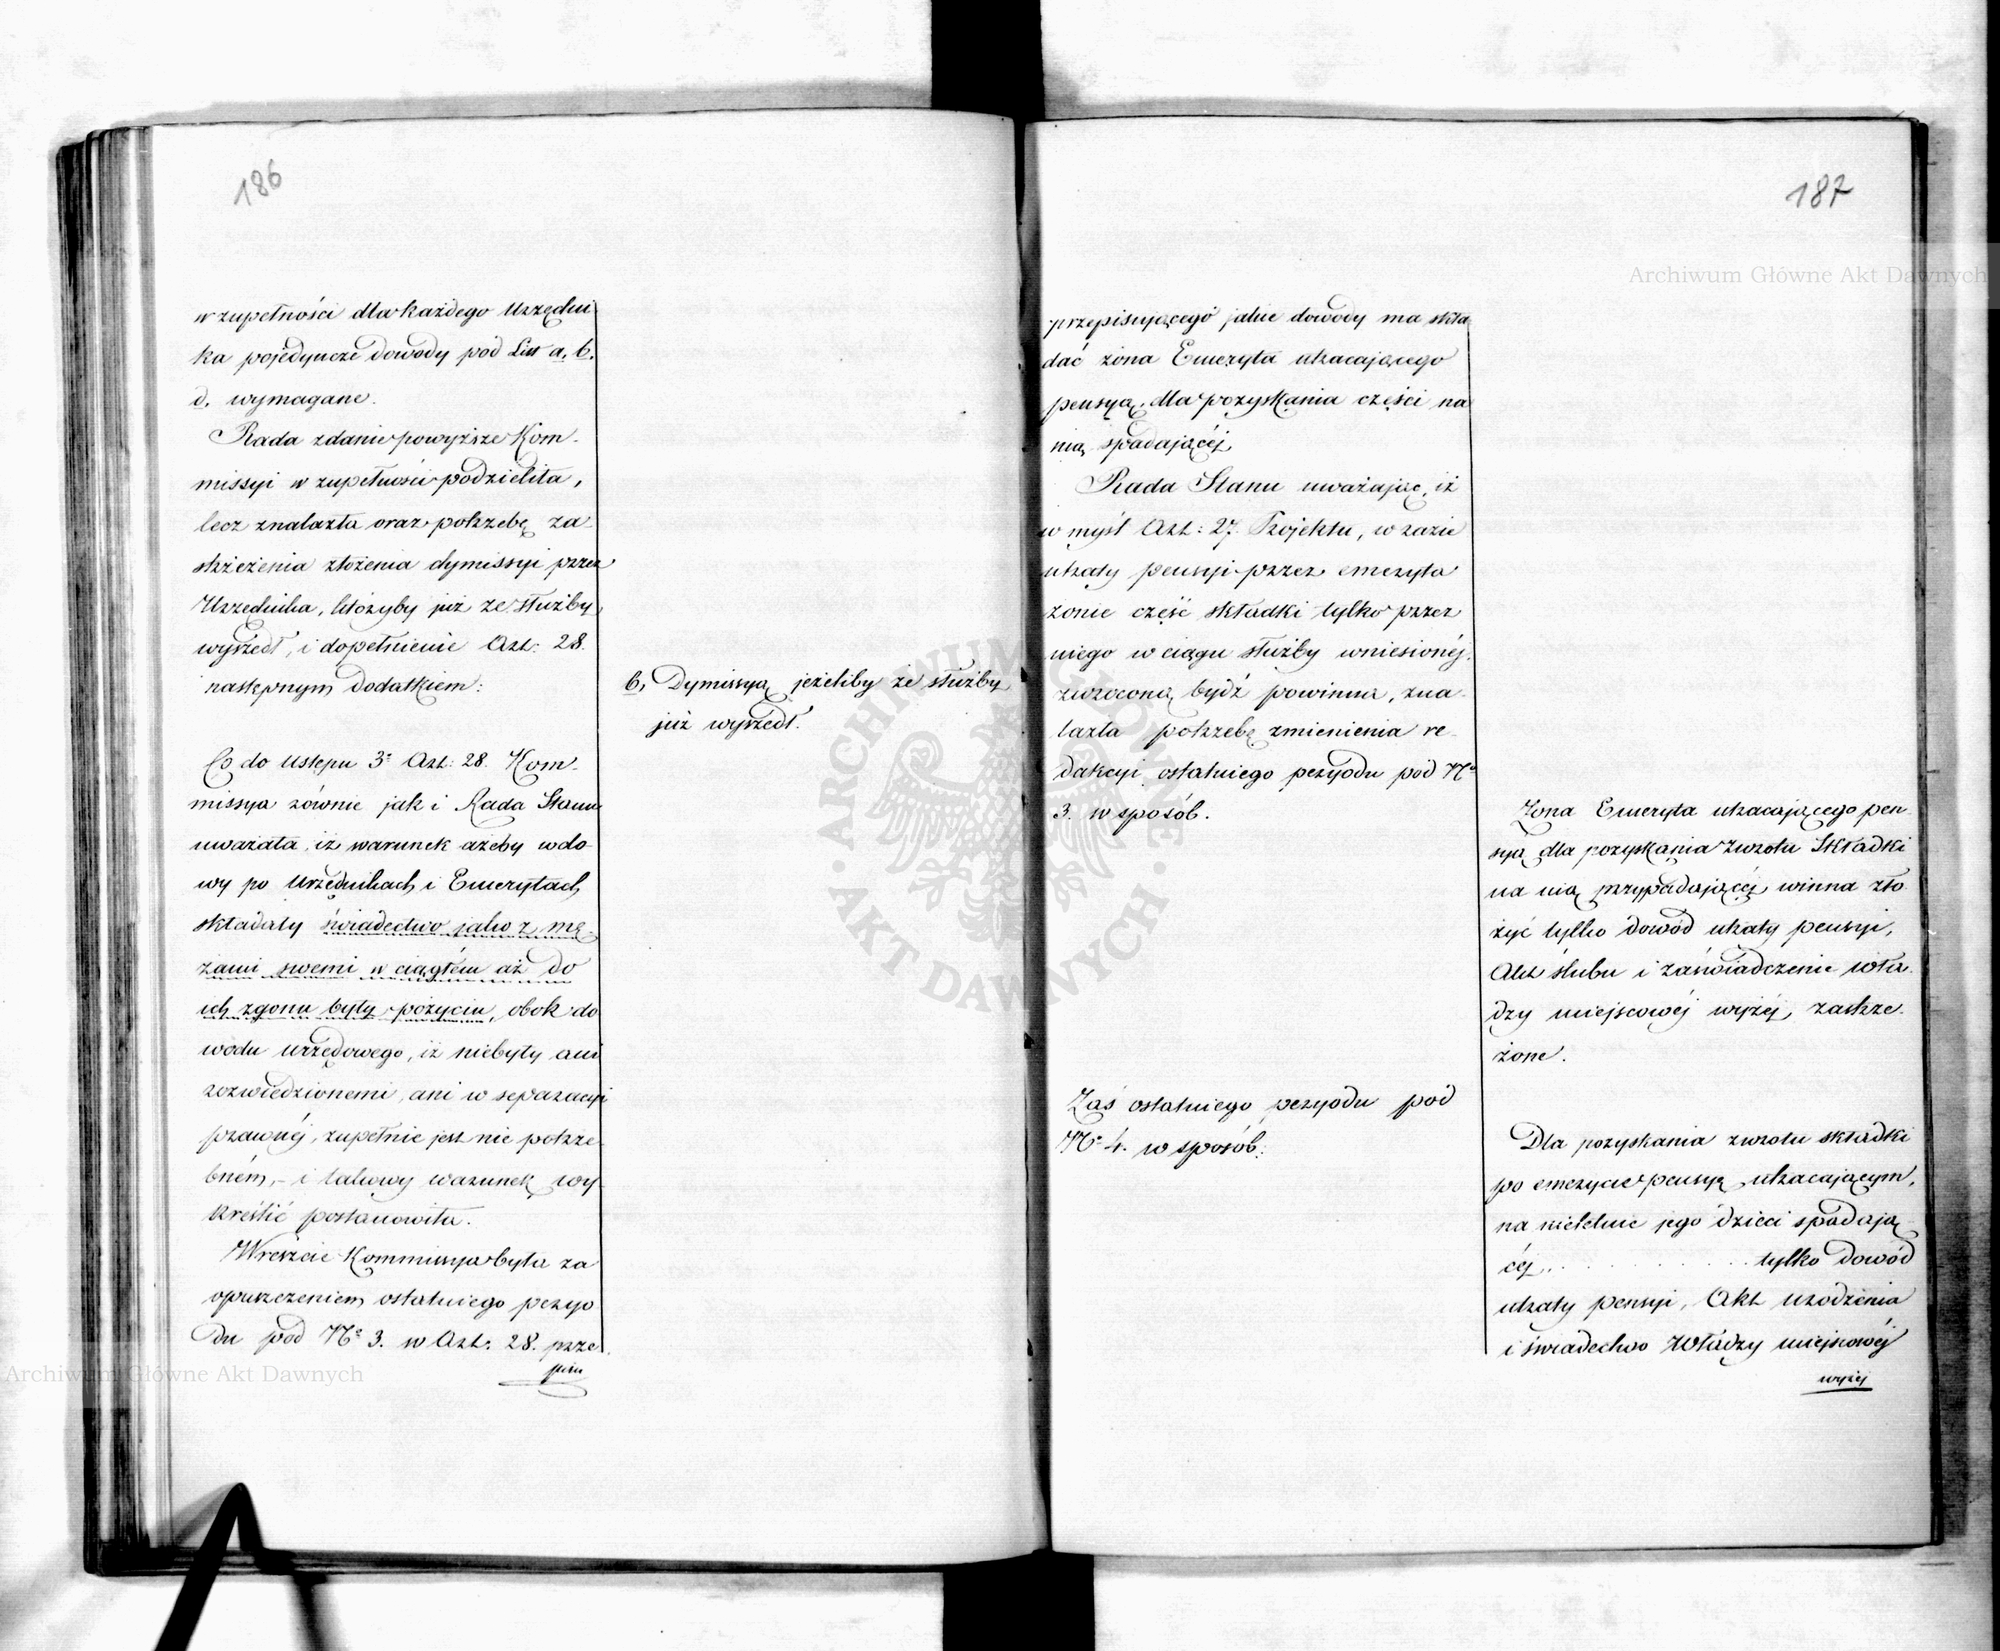 186
w zupełności dla każdego Urzędni
ka pojedyncze dowody pod Litt a, b,
d, wymagane.
Rada zdanie powyższe Kom-
missyi w zupełności podzieliła,
lecz znalazła oraz potrzebę za-
strzeżenia złożenia dymissyi przez
Urzędnika, któryby już ze służby
wyszedł, i dopełnienie Art: 28.
następnym dodatkiem:
b, Dymissyą jeżeliby ze służby
już wyszedł.
Co do Ustępu 3º Art: 28. Kom-
missya równie jak i Rada Stanu
uważała, iż warunek ażeby wdo-
wy po Urzędnikach i Emerytach
składały świadectwo jako z mę-
żami swemi w ciągłem aż do
ich zgonu były pożyciu, obok do
wodu urzędowego, iż niebyły ani
rozwiedzionemi, ani w separacyi
prawnéj, zupełnie jest nie potrze-
bném, - i takowy warunek wy-
kreślić postanowiła.
Wreszcie Kommissya była za
opuszczeniem ostatniego peryo
du pod Nº 3. w Art: 28. prze
pisu
187
przepisującego jakie dowody ma skła
dać żona Emeryta utracającego
pensyą, dla pozyskania części na
nią spadającéj
Rada Stanu uważając, iż
w myśl Art: 27. Projektu, w razie
utraty pensyi przez emeryta
żonie część składki tylko przez
niego w ciągu służby wniesionéj,
zwróconą bydź powinna, zna-
lazła potrzebę zmienienia re-
dakcyi ostatniego peryodu pod Nº
3. w sposób.
Żona Emeryta utracającego pen
syą dla pozyskania zwrotu Składki
na nią przypadającéj winna zło
żyć tylko dowód utraty pensyi,
Akt ślubu i zaświadczenie wła-
dzy miejscowéj wyżéj, zastrze-
żone.
Zaś ostatniego peryodu pod
Nº 4. w sposób:
Dla pozyskania zwrotu składki
po emerycie pensyą utracającym,
na niektóre jego dzieci spadają
céj . . . . . . . . . . tylko dowód
utraty pensyi, Akt urodzenia
i świadectwo Władzy miejscowéj
wyżéj
Archiwum Główne Akt Dawnych
Archiwum Główne Akt Dawnych
ARCHIWUM GŁÓWNE AKT DAWNYCH